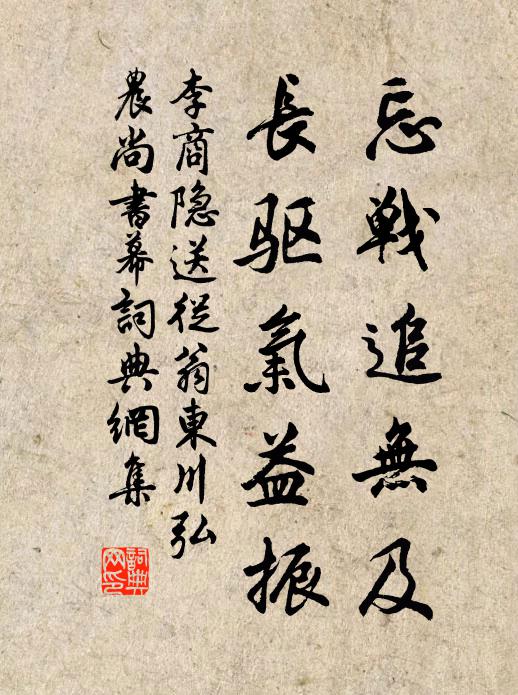 忘戦追無及
長驱氣益振
李商隐送從翁東川弘
農尚書幕詞典網集
詞典网印